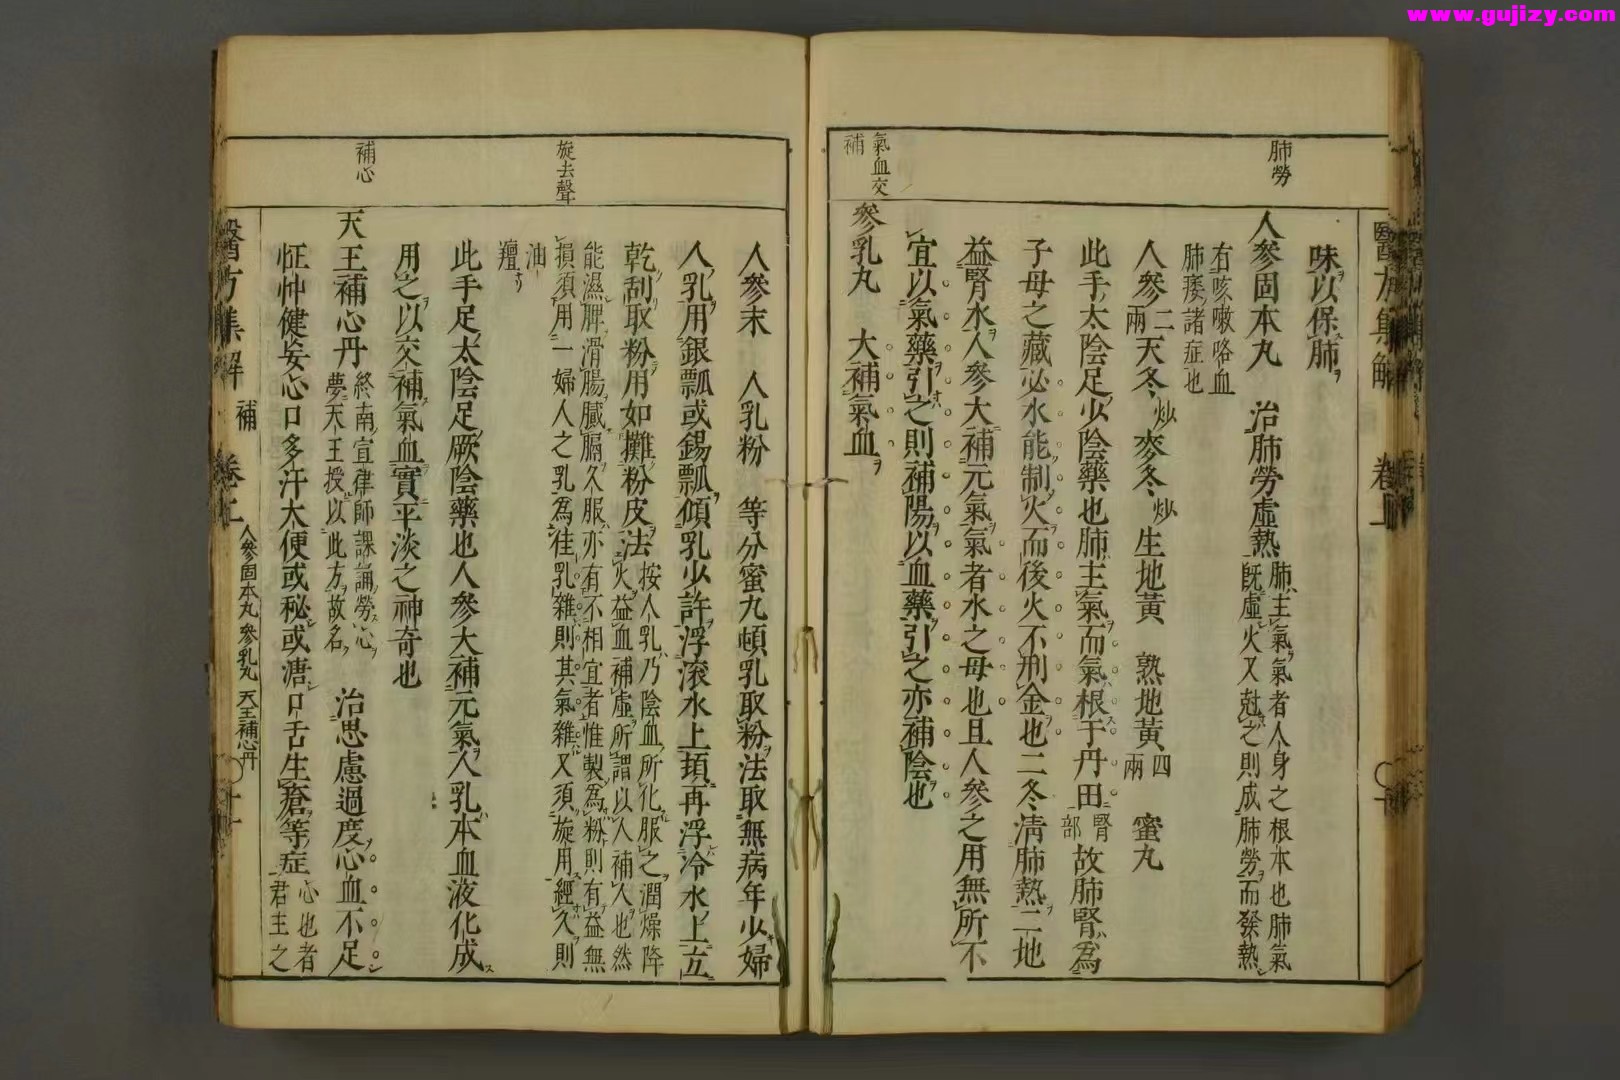 www.gujizy.com
肺勞
氣血交
補
味以保肺
人參固本丸　治肺勞虛熱
肺主氣氣者人身之根本也肺氣
既虛火又尅之則成肺勞而發熱
右咳嗽咯血
肺痿諸症也
人參二兩天冬炒麥冬炒生地黃　熟地黃四兩　蜜丸
此手太陰足少陰藥也肺主氣而氣根于丹田腎部故肺腎為
子母之藏必水能制火而後火不刑金也二冬清肺熱二地
益腎水人參大補元氣氣者水之母也且人參之用無所不
宜以氣藥引之則補陽以血藥引之亦補陰也
參乳丸　大補氣血
醫方集解　卷上
旋去聲
補心
人參末　人乳粉　等分蜜丸頓乳取粉法取無病年少婦
人乳用銀瓢或錫瓢傾乳少許浮滾水上頃再浮冷水上立
乾刮取粉用如攤粉皮法
按人乳乃陰血所化服之潤燥降
火益血補虛所謂以人補人也然
能濕脾滑腸膩膈久服亦有不相宜者惟製為粉則有益無
損須用一婦人之乳為佳乳雜則其氣雜又須旋用經久則
油
羶
此手足太陰足厥陰藥也人參大補元氣人乳本血液化成
用之以交補氣血實平淡之神奇也
天王補心丹
終南宣律師課誦勞心
夢天王授以此方故名
治思慮過度心血不足
怔忡健妄心口多汗大便或秘或溏口舌生瘡等症
心也者
君主之
醫方集解　補　卷上　人參固本丸　參乳丸　天王補心丹　〇十一